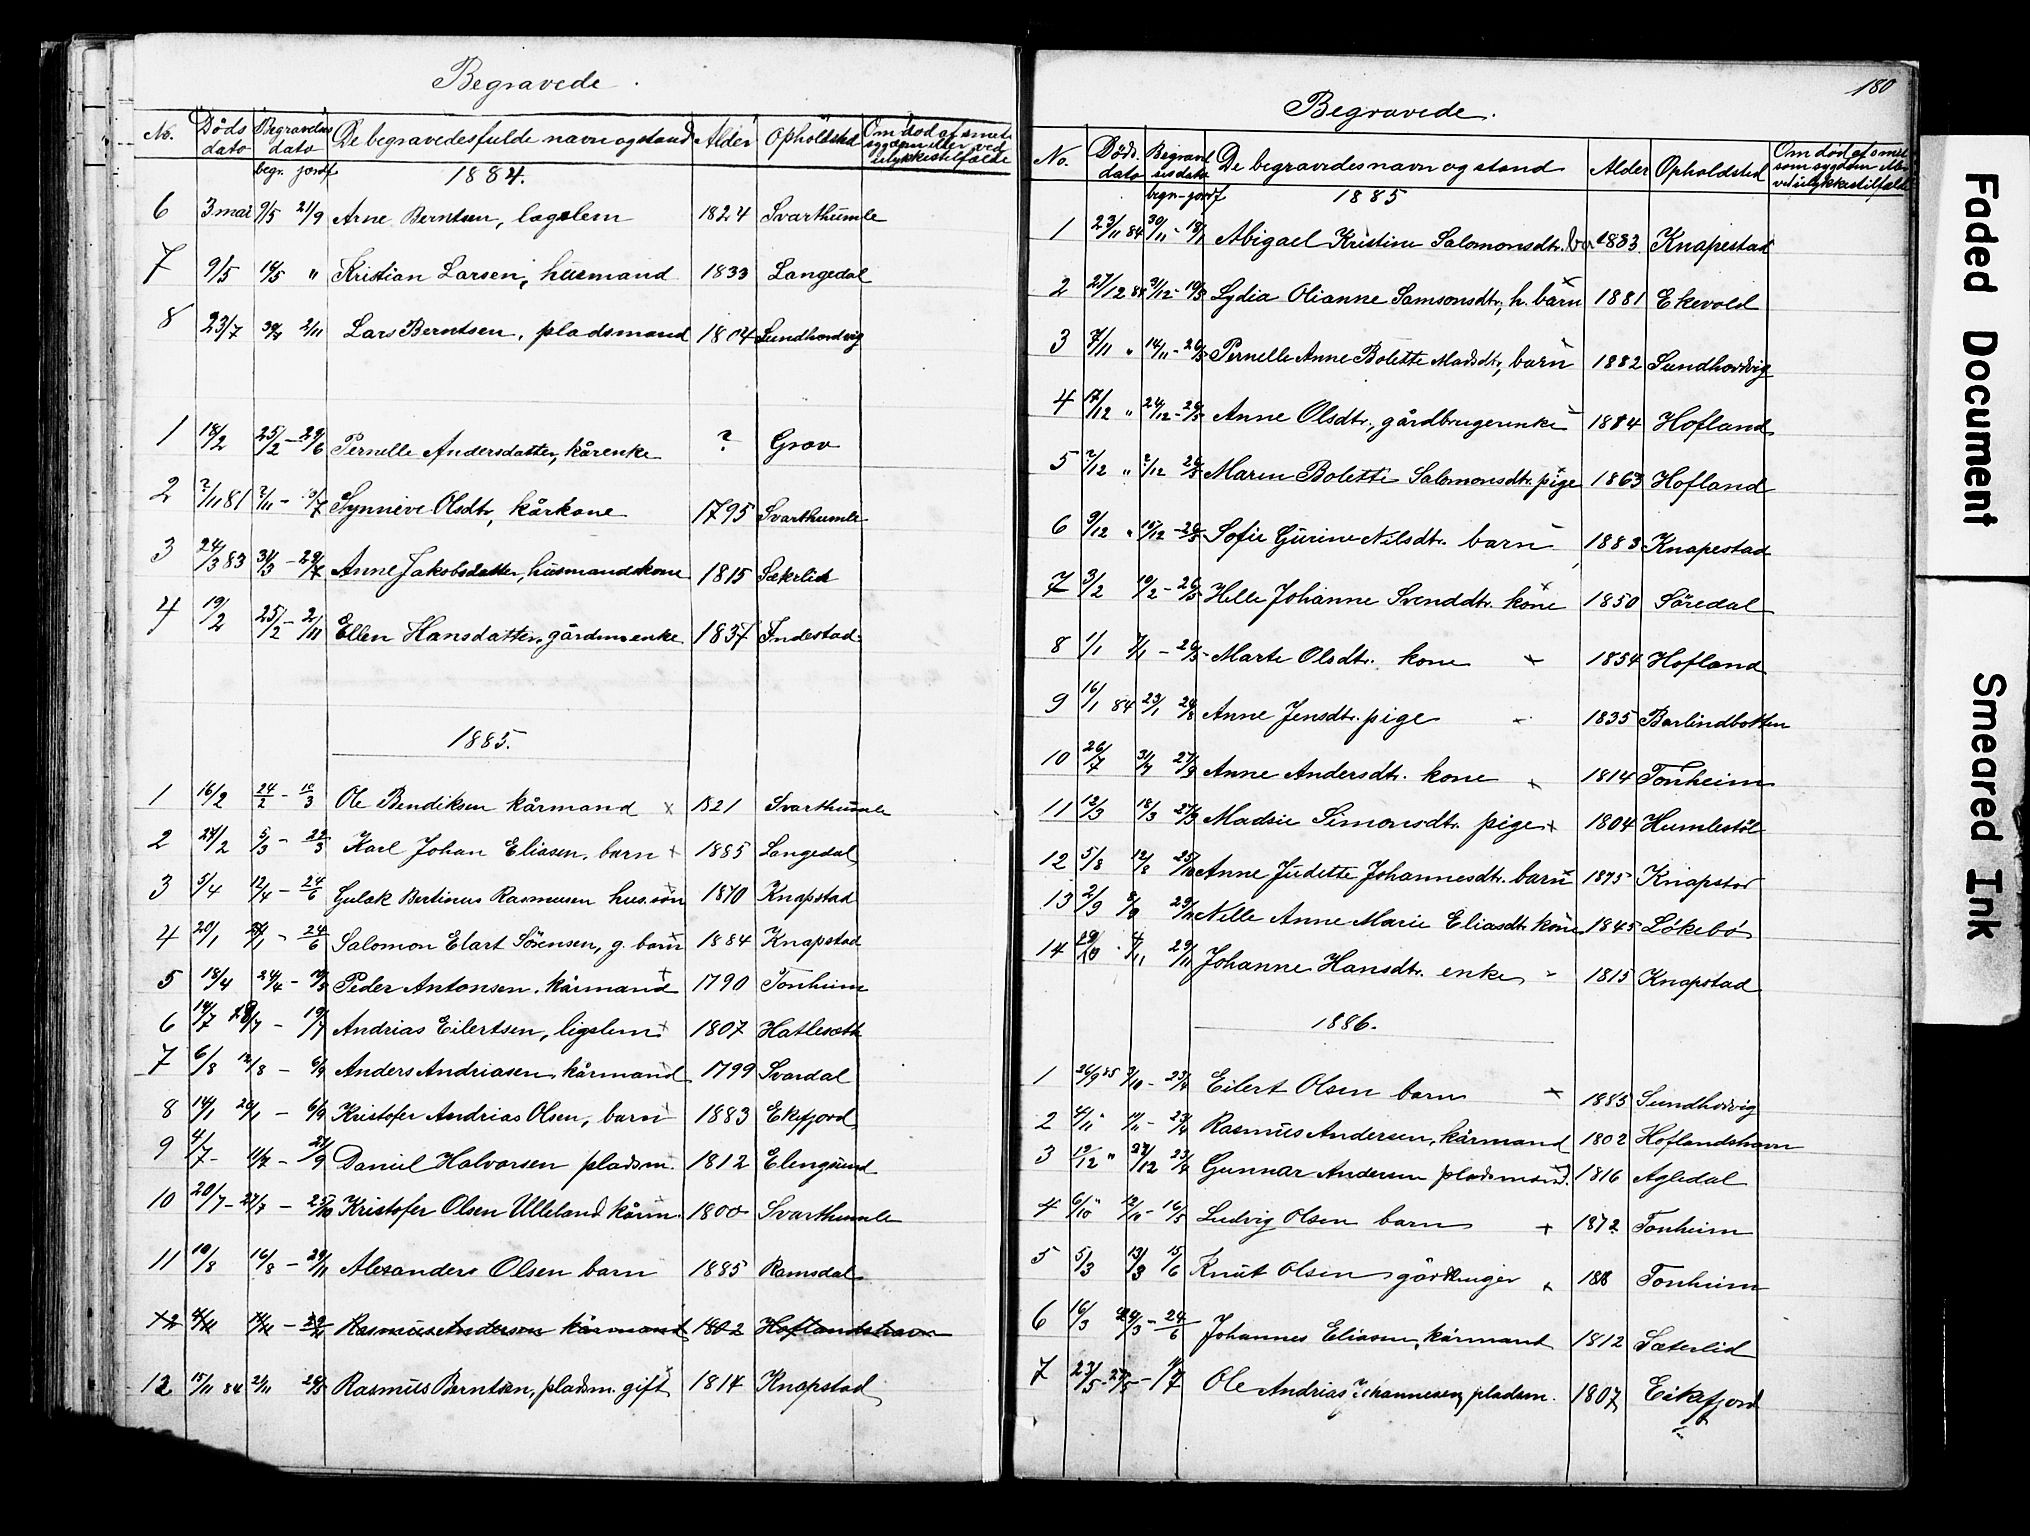 Begravede.
No. Døds dato Begravelses dato De begravedes fulde navn og stand Alder Opholdsted
begr. jordf
1884.
6 3 mai 9/5 21/9 Arne Berntsen, lægslem 1824 Svarthumle
7 9/5 14/5 " Kristian Larsen, husmand 1833 Langedal
8 23/7 2/11 Lars Berntsen, pladsmand 1804 Sundhordvig
1 18/2 25/2 - 29/6 Pernelle Andersdatter, kårenke ? Grov
2 ?/11 81 ?/11 - 3/7 Synneve Olsdtr, kårkone 1795 Svarthumle
3 24/3 83 31/3 - 29/7 Anne Jakobsdatter, husmandskone 1815 Sæterlid
4 19/2 25/2 - 2/11 Ellen Hansdatter, gårdm enke 1837 Indestad
1885.
1 16/2 24/2 - 10/3 Ole Bendiksen kårmand x 1821 Svarthumle
2 24/2 5/3 - 22/3 Karl Johan Eliasen, barn x 1885 Langedal
3 5/4 12/4 - 24/6 Gulak Bertinus Rasmusen hus.søn 1870 Knapstad
4 20/1 - 24/6 Salomon Elart Sørensen, g. barn 1884 Knapstad
5 18/4 24/4 - 14/5 Peder Antonsen, kårmand 1790 Tonheim
6 14/7 - 19/7 Andrias Eilertsen, ligslem x 1807 Hatlesæth
7 6/8 12/8 - 6/9 Anders Andriasen, kårmand 1799 Svardal
8 14/1 20/1 - 6/9 Kristofer Andrias Olsen, barn 1883 Ekefjord
9 4/7 - 11/7 - 27/9 Daniel Halvorsen pladsm. 1812 Elengsund
10 20/7 - 27/7 - 25/10 Kristofer Olsen Ulleland kårm. 1800 Svarthumle
11 10/8 16/8 - 29/11 Alexanders Olsen barn 1885 Ramsdal
12 4/11 - 29/11 Rasmus Andersen kårmand 1802 Hoflandshavn
12 15/11 84 21/11 26/5 Rasmus Berntsen, pladsm. gift 1814 Knapstad
180
Begravede.
No. Døds. dato Begravelsesdato De begravedes navn og stand Alder Opholdsted
begr - jordf
1885
1 23/11 84 30/11 - 18/1 Abigael Kristine Salomonsdtr. 1883. Knapestad
2 27/12 84 31/12 - 10/5 Lydia Olianne Samsonsdtr, h. barn 1881 Ekevold
3 7/11 " 14/11 - 26/5 Pernelle Anne Bolette Madsdtr, barn 1882 Sundhordvig
4 17/12 " 24/12 - 26/5 Anne Olsdtr, gårdbrugerenke 1884 Hofland
5 ?/12 " ?/12 26/5 Maren Bolette Salomonsdtr. pige 1863 Hofland
6 9/12 " 15/12 - 26/5 Sofie Gurine Nilsdtr. barn 1883 Knapestad
7 3/2 10/2 - 26/5 Helle Johanne Svenddtr. kone 1850 Søredal
8 1/1 7/1 - 26/5 Marte Olsdtr. kone x 1854 Hofland
9 16/1 84 23/1 24/8 Anne Jensdtr. pige 1835 Barlindbotten
10 26/7 31/7 27/9 Anne Andersdtr. kone x 1814 Tonheim
11 12/3 18/3 27/9 Madsie Simonsdtr. pige x 1804 Humlestøl
12 5/8 12/8 25/10 Anne Judette Johannesdtr. barn 1875 Knapstad
13 2/9 8/9 25/10 Nille Anne Marie Eliasdt. kone 1845 Løkebø
14 29/10 4/11 29/11 Johanne Hansdtr. enke 1815 Knapstad
1886.
1 26/9 85 3/10 - 23/4 Eilert Olsen barn x 1885 Sundhovvig
2 4/11 " 11/11 - 23/4 Rasmus Andersen, kårmand 1802 Hoflandshavn
3 15/12 " 22/12 23/4 Gunnar Andersen pladsmand. 1816 Agledal
4 6/10 " 12/10 - 16/5 Ludvig Olsen barn x 1872 Tonheim
5 5/3 13/3 15/6 Knut Olsen gårdbruger x Tonheim
6 16/3 - 24/6 Johannes Eliasen, kårmand 1812 Sæterlid
7 23/5 - 27/5 - Ole Andrias Johannesen, pladsm. 1807 Eikefjord
Faded Document
Smeared Ink